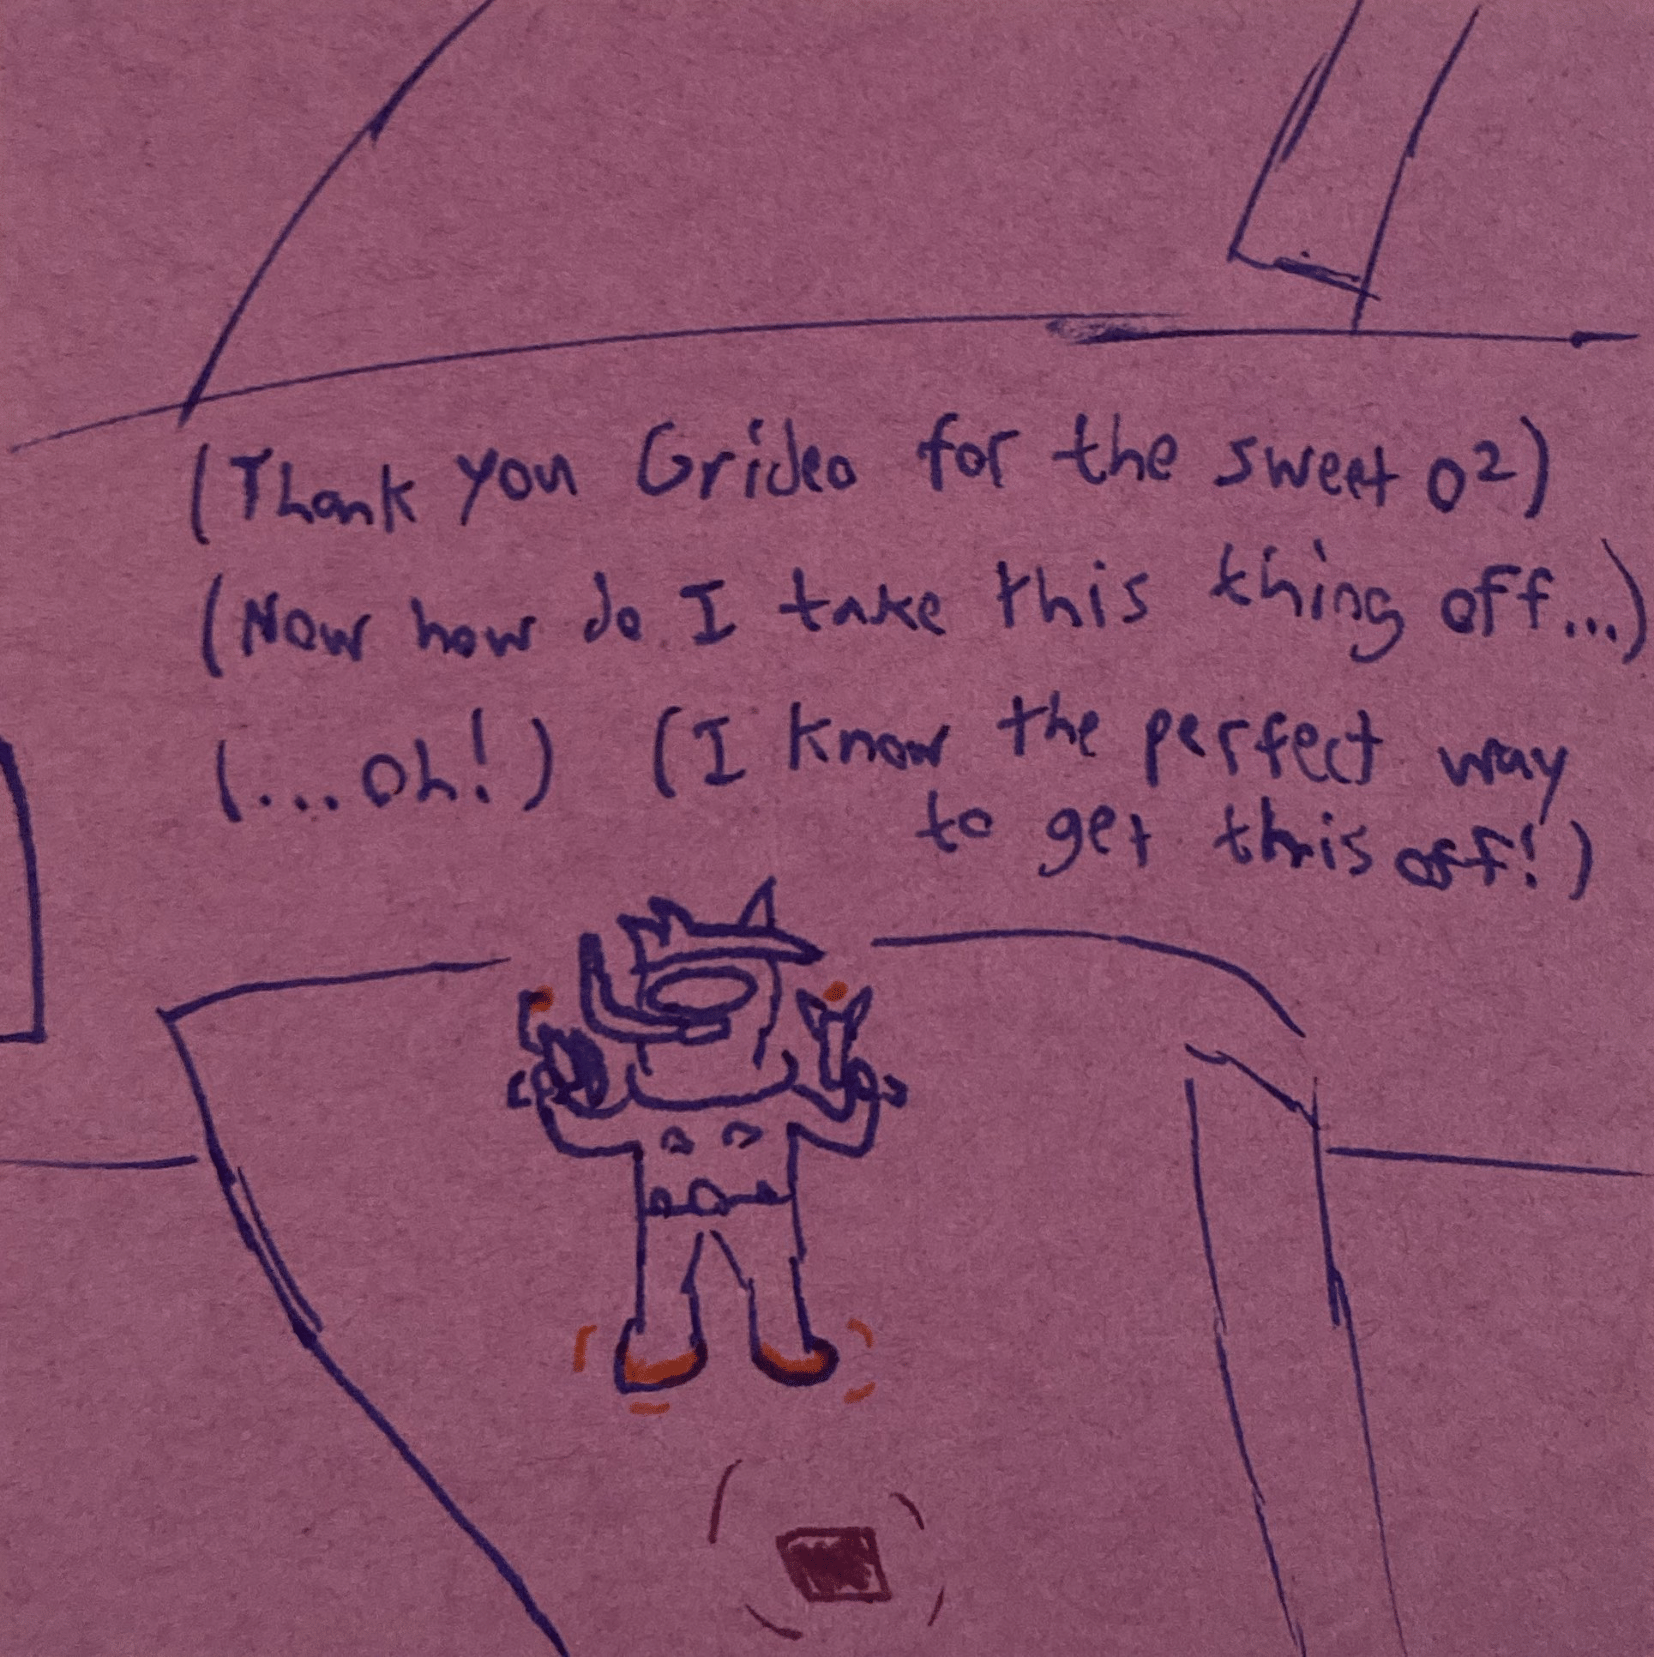 (Thank you Grideo for the sweet O²)
(Now how do I take this thing off...)
(...Oh!) (I know the perfect way
to get this off!)